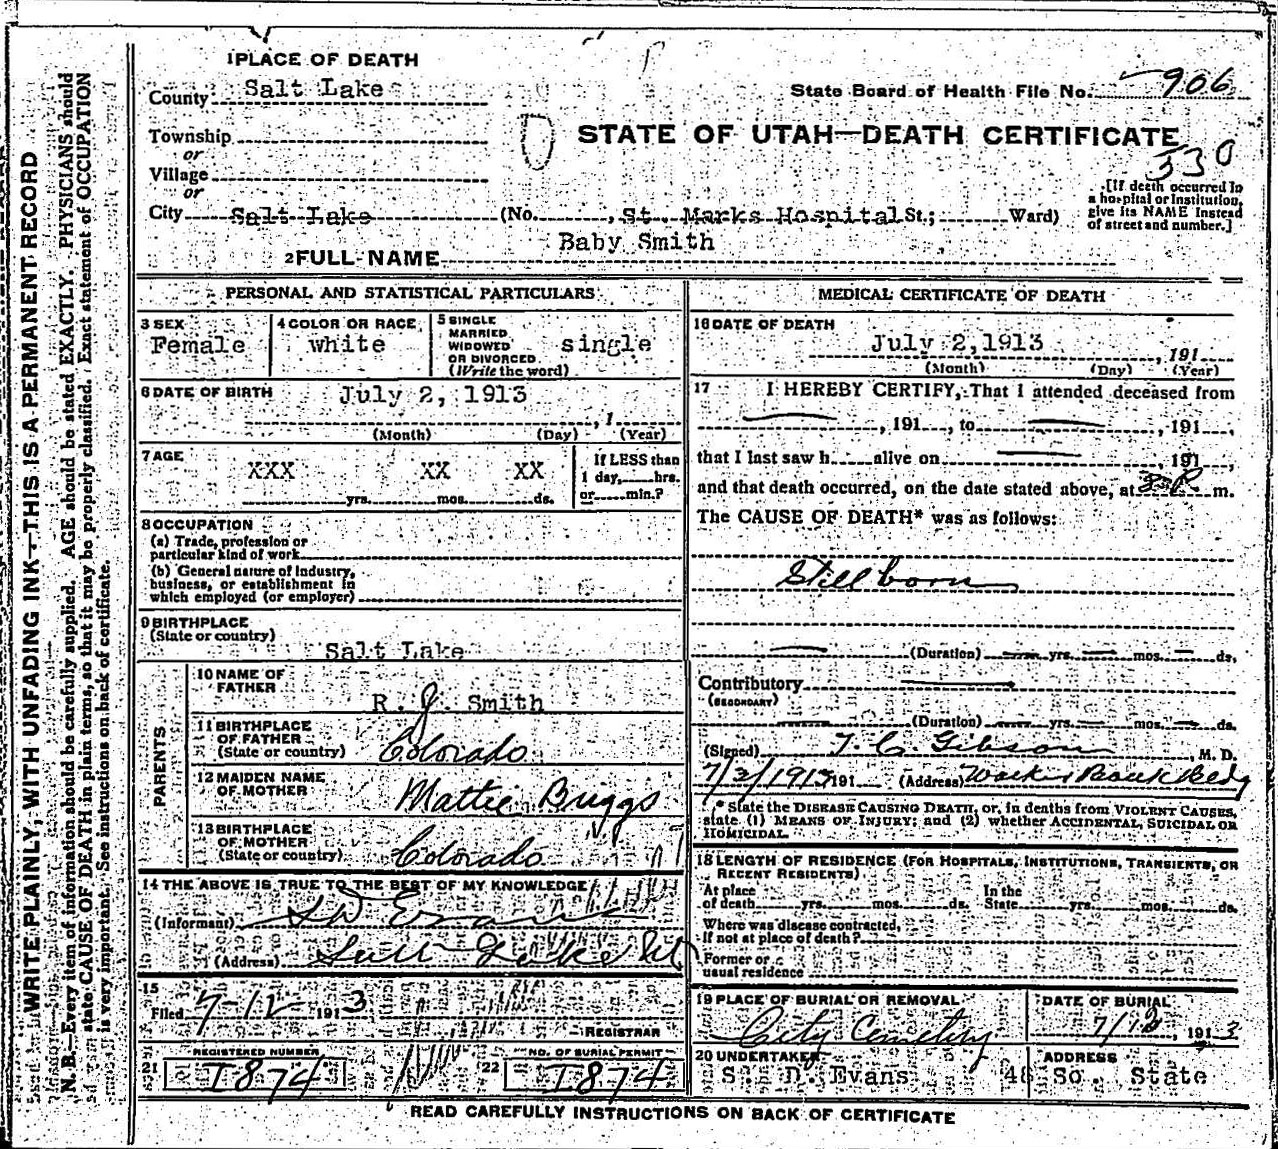 1 PLACE OF DEATH
County Salt Lake
State Board of Health File No. 906
Township
or
Village
or
STATE OF UTAH—DEATH CERTIFICATE
530
[If death occurred in
a hospital or institution,
give its NAME instead
of street and number.]
City Salt Lake (No. , St. Marks Hospital St.; Ward)
2 FULL NAME Baby Smith
PERSONAL AND STATISTICAL PARTICULARS
3 SEX
Female
4 COLOR OR RACE
white
5 SINGLE
MARRIED
WIDOWED
OR DIVORCED
(Write the word)
single
6 DATE OF BIRTH July 2, 1913
, 1
(Month) (Day) (Year)
7 AGE
XXX yrs. XX mos. XX ds.
If LESS than
1 day, hrs.
or min.?
8 OCCUPATION
(a) Trade, profession or
particular kind of work
(b) General nature of industry,
business, or establishment in
which employed (or employer)
9 BIRTHPLACE
(State or country)
Salt Lake
PARENTS
10 NAME OF
FATHER
R. J. Smith
11 BIRTHPLACE
OF FATHER
(State or country) Colorado
12 MAIDEN NAME
OF MOTHER
Mattie Buggs
13 BIRTHPLACE
OF MOTHER
(State or country) Colorado
14 THE ABOVE IS TRUE TO THE BEST OF MY KNOWLEDGE
(Informant) S D Evans
(Address) Salt Lake
15
Filed 7-12 1913
REGISTRAR
REGISTERED NUMBER
21 1874
NO. OF BURIAL PERMIT
22 1874
MEDICAL CERTIFICATE OF DEATH
16 DATE OF DEATH
July 2, 1913
, 191
(Month) (Day) (Year)
17 I HEREBY CERTIFY, That I attended deceased from
, 191 , to , 191 ,
that I last saw h alive on , 191 ,
and that death occurred, on the date stated above, at m.
The CAUSE OF DEATH* was as follows:
Stillborn
(Duration) yrs. mos. ds.
Contributory
(SECONDARY)
(Duration) yrs. mos. ds.
(Signed) T. C. Gibson , M. D.
7/2/1913 191 (Address) Walker Bank Bldg
* State the DISEASE CAUSING DEATH, or, in deaths from VIOLENT CAUSES,
state (1) MEANS OF INJURY; and (2) whether ACCIDENTAL, SUICIDAL OR
HOMICIDAL.
18 LENGTH OF RESIDENCE (FOR HOSPITALS, INSTITUTIONS, TRANSIENTS, OR
RECENT RESIDENTS)
At place
of death yrs. mos. ds.
In the
State yrs. mos. ds.
Where was disease contracted,
If not at place of death?
Former or
usual residence
19 PLACE OF BURIAL OR REMOVAL
City Cemetery
DATE OF BURIAL
7/12, 1913
20 UNDERTAKER
S. D. Evans
ADDRESS
48 So. State
READ CAREFULLY INSTRUCTIONS ON BACK OF CERTIFICATE
WRITE PLAINLY, WITH UNFADING INK—THIS IS A PERMANENT RECORD
N. B.—Every item of information should be carefully supplied. AGE should be stated EXACTLY. PHYSICIANS should
state CAUSE OF DEATH in plain terms, so that it may be properly classified. Exact statement of OCCUPATION
is very important. See instructions on back of certificate.